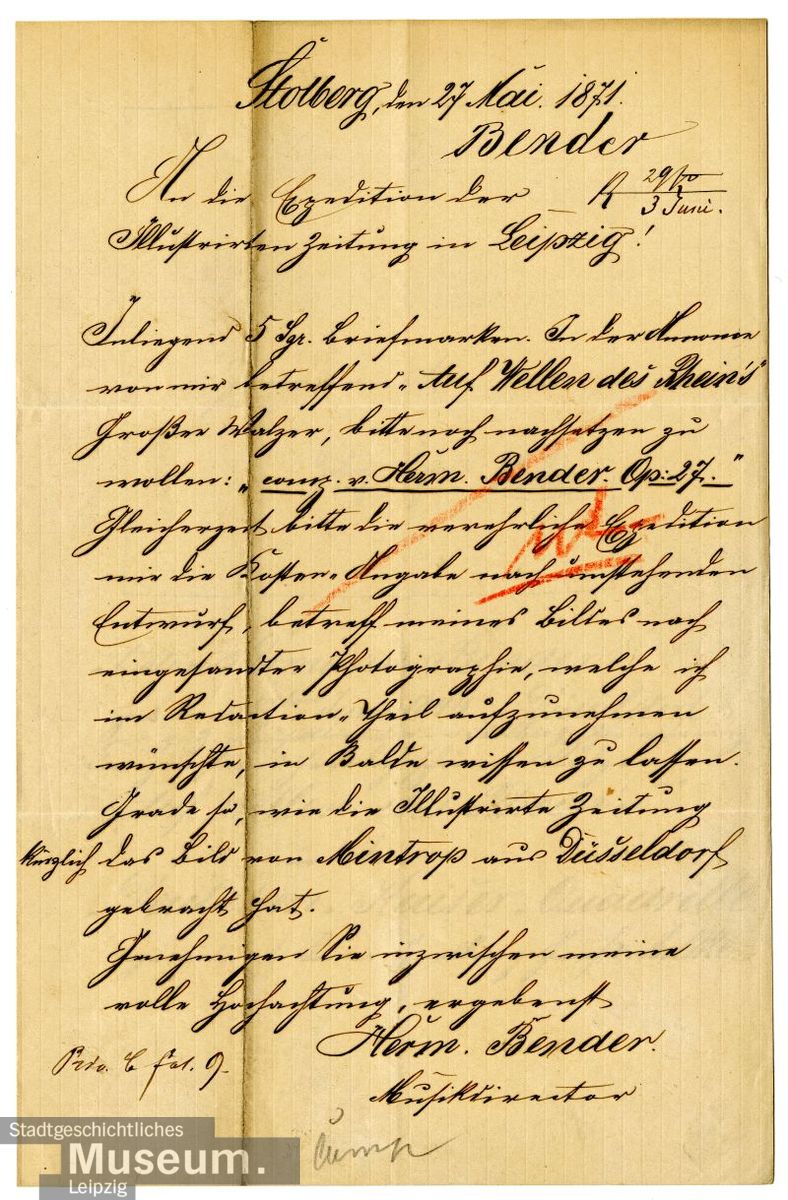 Stolberg, den 27 Mai. 1871.
Bender
An die Expedition der
R 29/5
3 Juni.
Illustrirten Zeitung in Leipzig!
Inliegend 5 Sgr. Briefmarken. In der Annonce
von mir betreffend „Auf Wellen des Rhein's"
Großer Walzer, bitte noch nachsetzen zu
wollen: „comp. v. Herm. Bender. Op: 27."
Gleicherzeit bitte die verehrliche Expedition
mir die Kosten-Angabe nach umstehenden
Entwurf, betreff meines Bildes nach
eingesandter Photographie, welche ich
im Redaction-Theil aufzunehmen
wünschte, in Balde wissen zu lassen.
Grade so, wie die Illustrirte Zeitung
kürzlich das Bild von Mintrop aus Düsseldorf
gebracht hat.
Genehmigen Sie inzwischen meine
volle Hochachtung, ergebenst
Herm. Bender.
Musikdirector
fol. 9.
Stadtgeschichtliches
Museum.
Leipzig